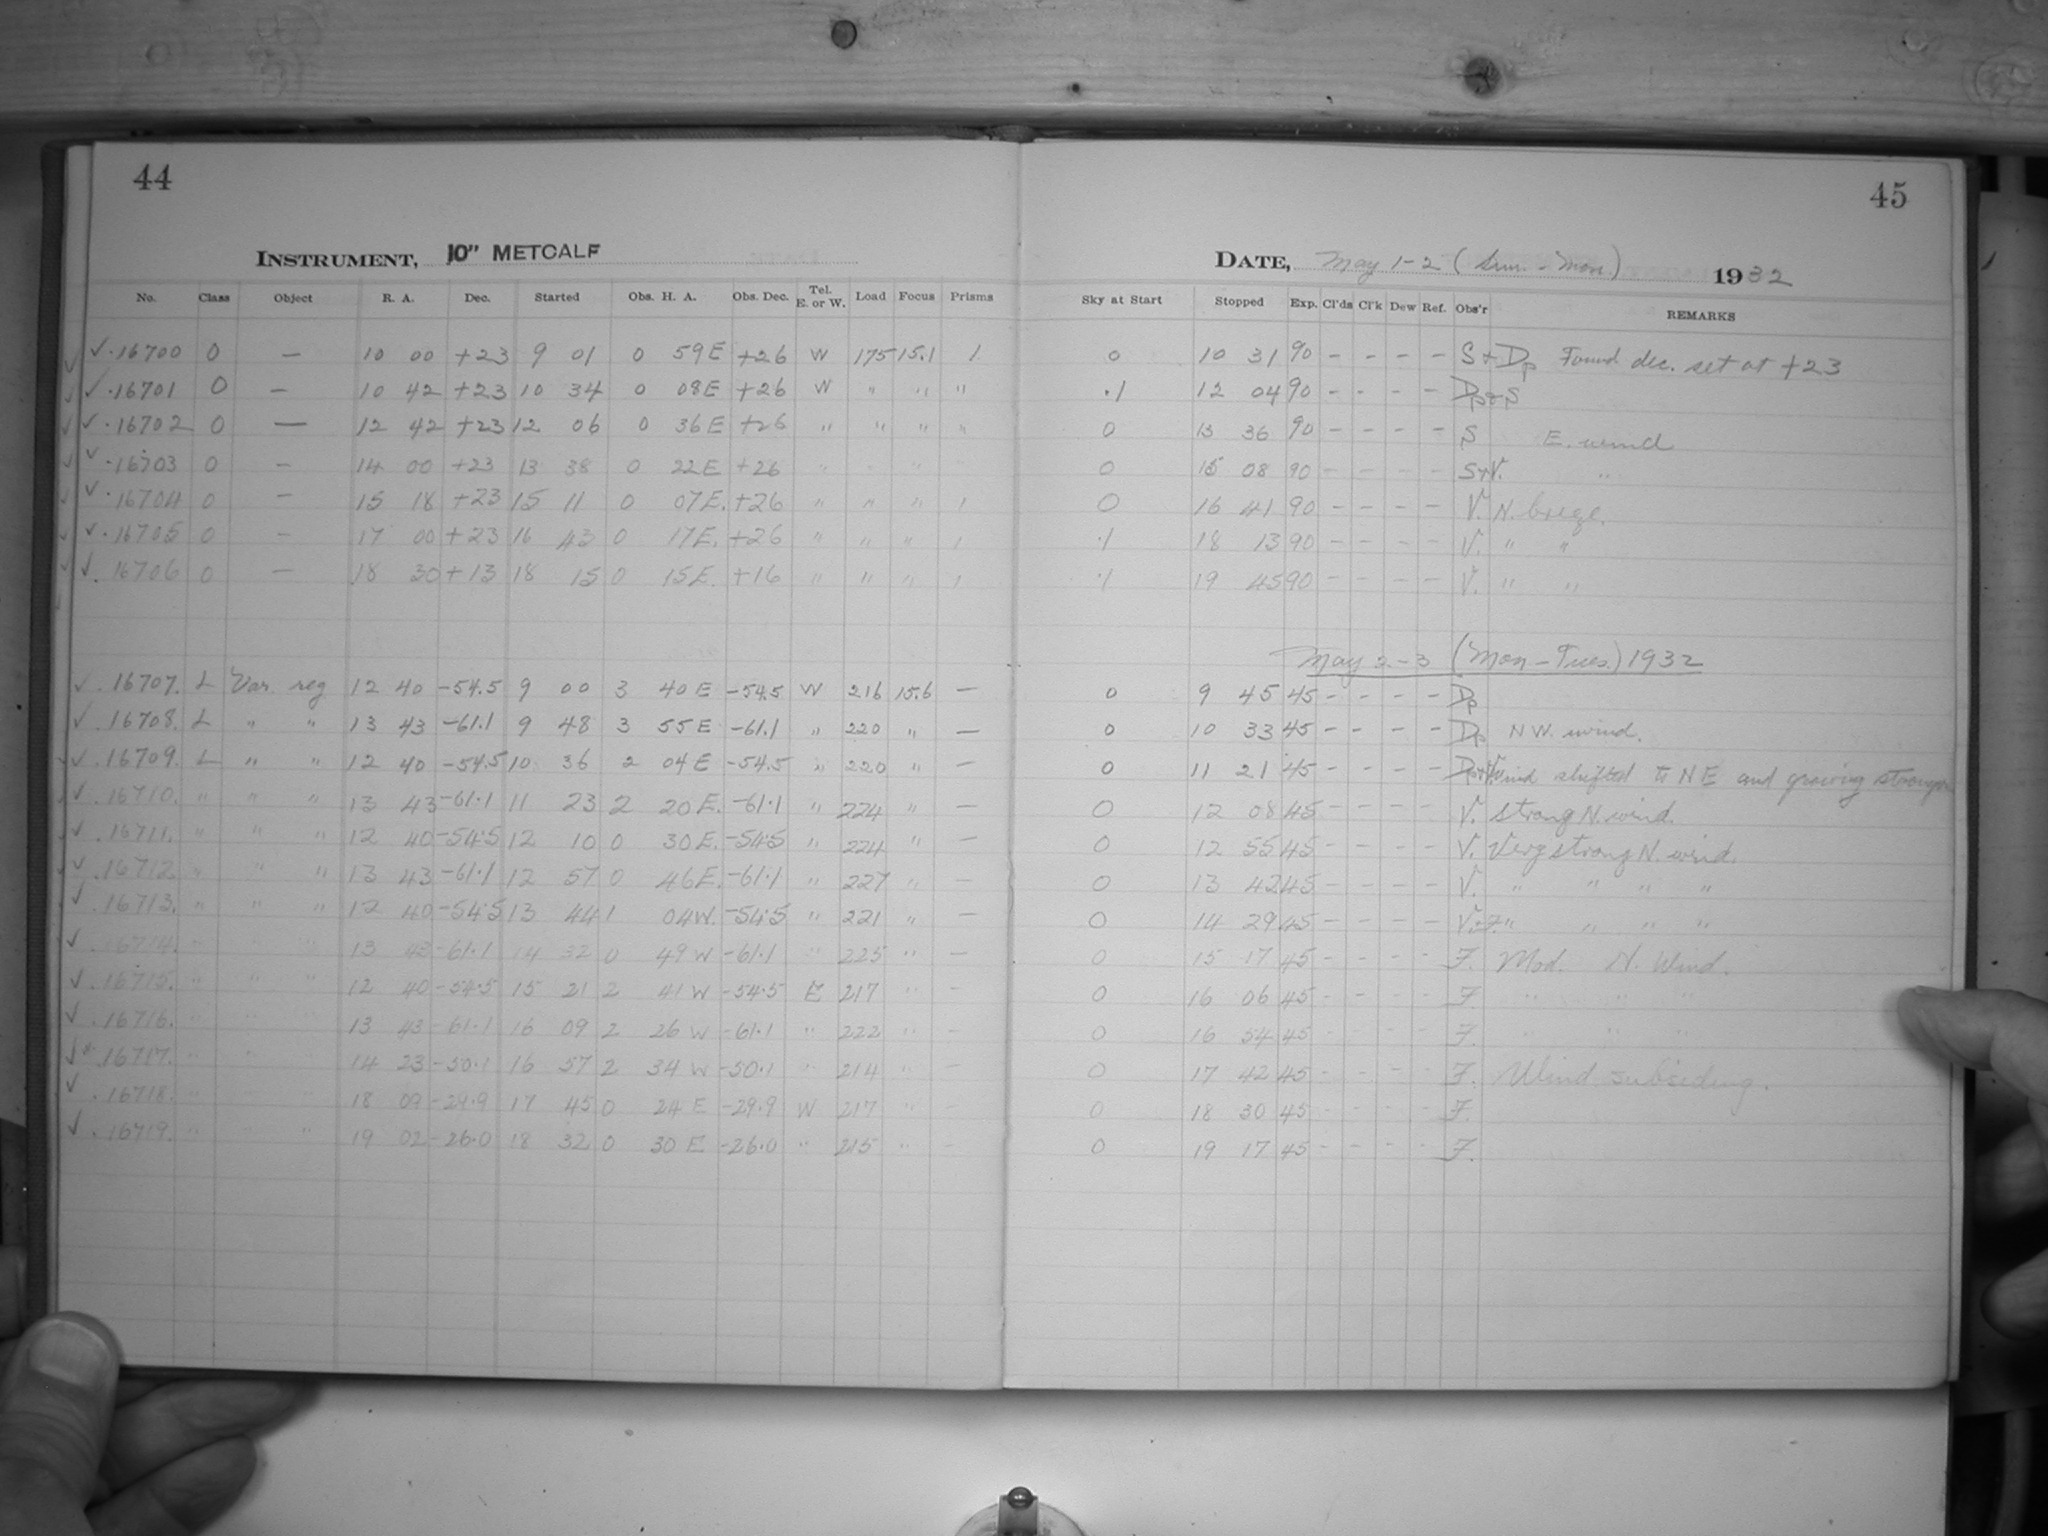 44
INSTRUMENT, 10" METCALF
No. Class Object R. A. Dec. Started Obs. H. A. Obs. Dec. Tel. E. or W. Load Focus Prisms
✓ .16700 O — 10 00 +23 9 01 0 59E +26 W 175 15.1 1
✓ .16701 O — 10 42 +23 10 34 0 08E +26 W " " "
✓ .16702 O — 12 42 +23 12 06 0 36E +26 " " " "
✓ .16703 O — 14 00 +23 13 38 0 22E +26 " " " "
✓ .16704 O — 15 18 +23 15 11 0 07E. +26 " " " 1
✓ .16705 O — 17 00 +23 16 43 0 17E. +26 " " " 1
✓ .16706 O — 18 30 +13 18 15 0 15E. +16 " " " 1
✓ .16707. L Var. reg 12 40 -54.5 9 00 3 40E -54.5 W 216 15.6 —
✓ .16708. L " " 13 43 -61.1 9 48 3 55E -61.1 " 220 " —
✓ .16709. L " " 12 40 -54.5 10 36 2 04E -54.5 " 220 " —
✓ .16710. " " " 13 43 -61.1 11 23 2 20E. -61.1 " 224 " —
✓ .16711. " " " 12 40 -54.5 12 10 0 30E. -54.5 " 224 " —
✓ .16712 " " " 13 43 -61.1 12 57 0 46E. -61.1 " 227 " —
✓ .16713. " " " 12 40 -54.5 13 44 1 04W. -54.5 " 221 " —
✓ .16714. " " " 13 43 -61.1 14 32 0 49W -61.1 " 225 " —
✓ .16715. " " " 12 40 -54.5 15 21 2 41W -54.5 E 217 " -
✓ .16716. " " " 13 43 -61.1 16 09 2 26W -61.1 " 222 " -
✓ * .16717. " " 14 23 -50.1 16 57 2 34W -50.1 " 214 " —
✓ .16718. " " " 18 09 -29.9 17 45 0 24E -29.9 W 217 " -
✓ .16719. " " " 19 02 -26.0 18 32 0 30E -26.0 " 215 " -
45
DATE, May 1-2 (Sun. - Mon) 1932
Sky at Start Stopped Exp. Cl'ds Cl'k Dew Ref. Obs'r REMARKS
0 10 31 90 - - - - S+Dp Found dec. set at +23
.1 12 04 90 - - - - Dp+S
0 13 36 90 - - - - S E. wind
0 15 08 90 - - - - S+V. "
0 16 41 90 - - - - V. N. breeze.
.1 18 13 90 - - - - V. " "
.1 19 45 90 - - - - V. " "
May 2-3 (Mon-Tues.) 1932
0 9 45 45 - - - - Dp
0 10 33 45 - - - - Dp NW. wind.
0 11 21 45 - - - - Dp+V Wind shifted to NE and growing stronger
0 12 08 45 - - - - V. Strong N. wind.
0 12 55 45 - - - - V. Very strong N. wind.
0 13 42 45 - - - - V. " " " "
0 14 29 45 - - - - V.+F. " " " "
0 15 17 45 - - - - F. Mod. N. Wind.
0 16 06 45 - - - - F " " "
0 16 54 45 - - - - F. " " "
0 17 42 45 - - - - F. Wind subsiding.
0 18 30 45 - - - - F.
0 19 17 45 - - - - F.